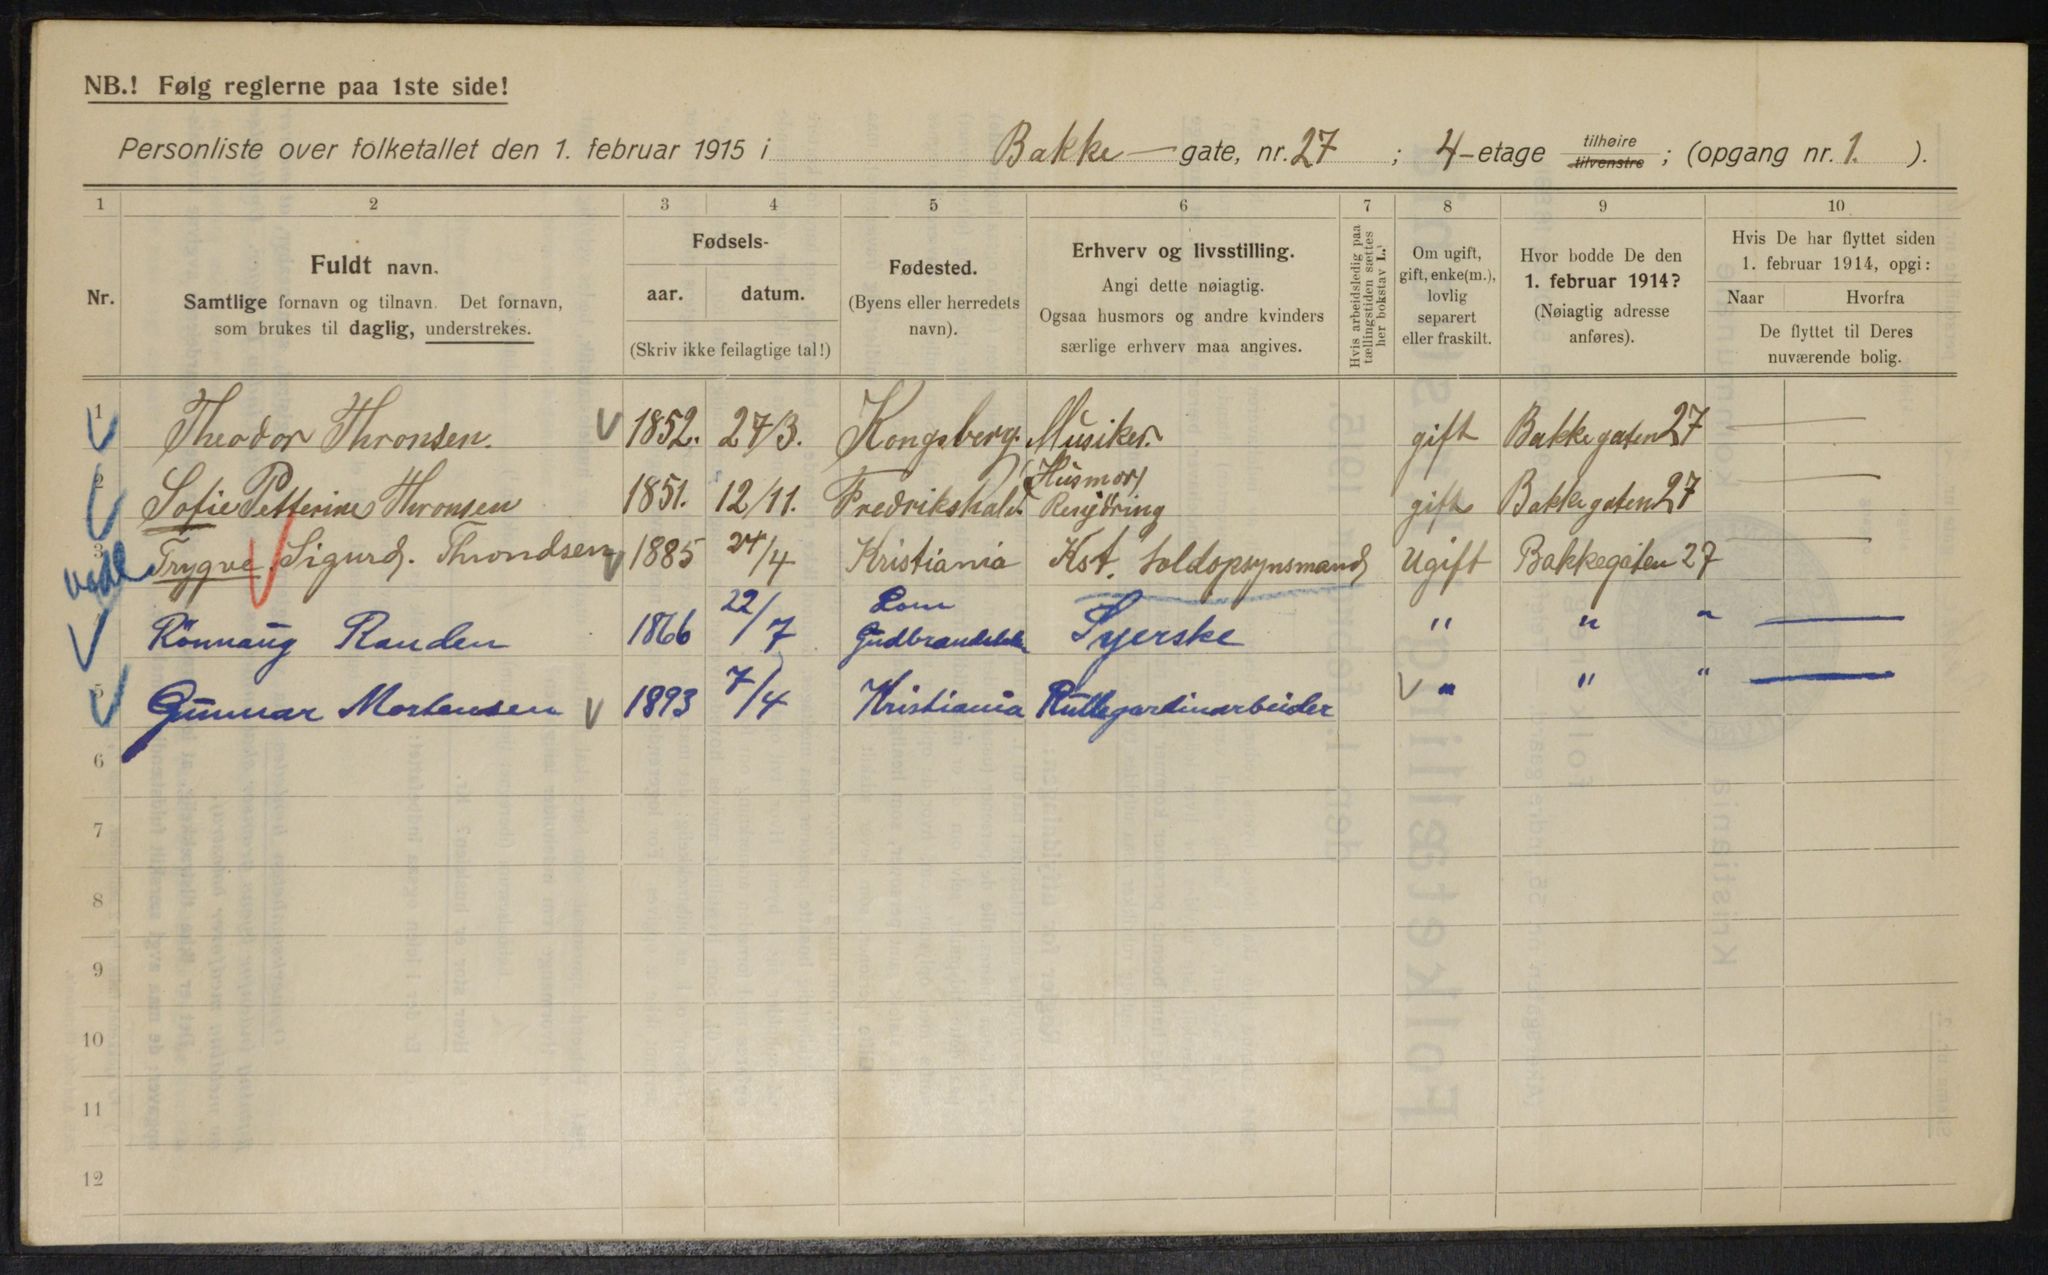 NB.! Følg reglerne paa 1ste side!
Personliste over folketallet den 1. februar 1915 i Bakke gate, nr. 27 ; 4-etage tilhøire tilvenstre ; (opgang nr. 1. ).
1 2 3 4 5 6 7 8 9 10
Nr.
Fuldt navn.
Samtlige fornavn og tilnavn. Det fornavn,
som brukes til daglig, understrekes.
Fødsels-
aar. datum.
(Skriv ikke feilagtige tal!)
Fødested.
(Byens eller herredets
navn).
Erhverv og livsstilling.
Angi dette nøiagtig.
Ogsaa husmors og andre kvinders
særlige erhverv maa angives.
Hvis arbeidsledig paa
tællingstiden sættes
her bokstav L.
Om ugift,
gift, enke(m.),
lovlig
separert
eller fraskilt.
Hvor bodde De den
1. februar 1914?
(Nøiagtig adresse
anføres).
Hvis De har flyttet siden
1. februar 1914, opgi:
Naar Hvorfra
De flyttet til Deres
nuværende bolig.
1 Theodor Thronsen. 1852. 27/3. Kongsberg. Musiker. gift Bakkegaten 27 —
2 Sofie Petterine Thronsen 1851. 12/11. Fredrikshald. Husmor Rengöring gift Bakkegaten 27 —
3 Trygve Sigurd. Throndsen 1885 24/4 Kristiania Kst. toldopsynsmand Ugift Bakkegaten 27 —
Rönnaug Randen 1866 22/7 Lom Gudbrandsdalen Syerske " " " —
5 Gunnar Mortensen 1893 7/4 Kristiania Rullegardinarbeider " " " —
6
7
8
9
10
11
12